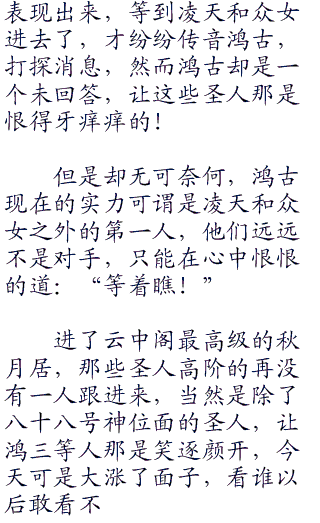 表现出来，等到凌天和众女
进去了，才纷纷传音鸿古，
打探消息，然而鸿古却是一
个未回答，让这些圣人那是
恨得牙痒痒的！
但是却无可奈何，鸿古
现在的实力可谓是凌天和众
女之外的第一人，他们远远
不是对手，只能在心中恨恨
的道：“等着瞧！”
进了云中阁最高级的秋
月居，那些圣人高阶的再没
有一人跟进来，当然是除了
八十八号神位面的圣人，让
鸿三等人那是笑逐颜开，今
天可是大涨了面子，看谁以
后敢看不